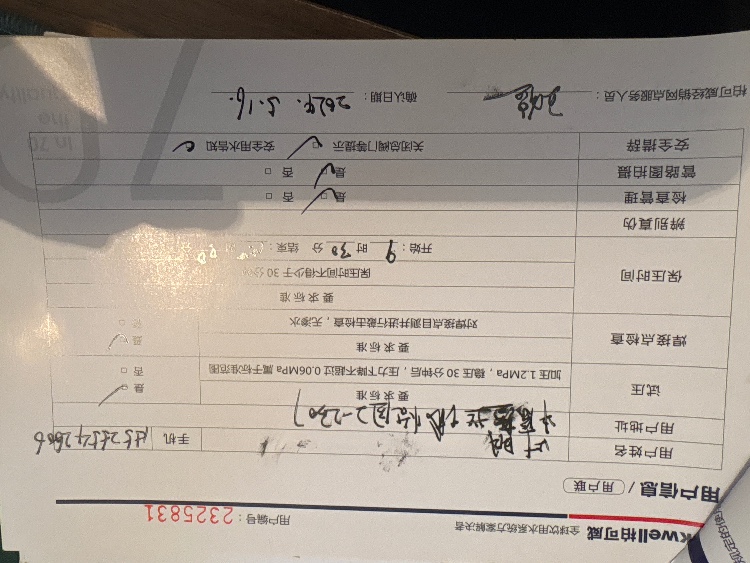 kwell柏可威 全球饮用水系统方案解决者
用户编号：2325831
用户信息 / 用户联
用户姓名
手机
用户地址 2-2307
试压 要求标准 是
加压1.2MPa，稳压30分钟后，压力下降不超过0.06MPa属于标准范围 否
焊接点检查 要求标准 是
对焊接点目测并进行敲击检查，无渗水 否
保压时间 要求标准
保压时间不得少于30分钟
开始：9时30分 结束：
辨别真伪
检查管理 是 否
管路图拍摄 是 否
安全措辞 关闭总阀门等提示 安全用水告知
柏可威经销网点服务人员： 确认日期：2024.5.16.
In 70
the
quality